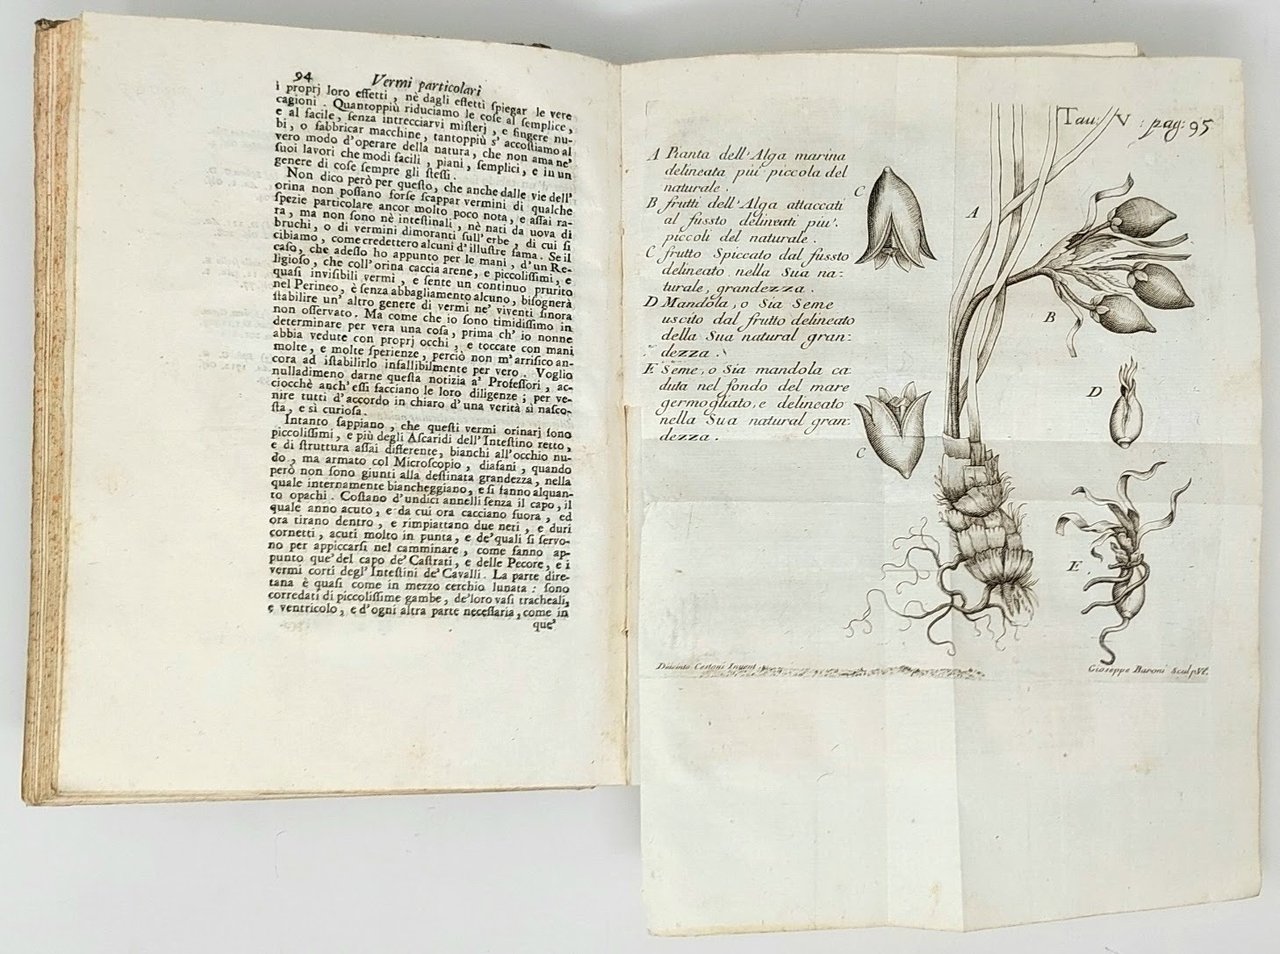 94
Vermi particolari
i proprj loro effetti, nè dagli effetti ſpiegar le vere
cagioni. Quantoppiù riduciamo le coſe al ſemplice,
e al facile, ſenza intrecciarvi miſterj, e fingere nu-
bi, o fabbricar macchine, tantoppiù s' accoſtiamo al
vero modo d'operare della natura, che non ama ne'
ſuoi lavori che modi facili, piani, ſemplici, e in un
genere di coſe ſempre gli ſteſſi.
Non dico però per queſto, che anche dalle vie dell'
orina non poſſano forſe ſcappar vermini di qualche
ſpezie particolare ancor molto poco nota, e aſſai ra-
ra, ma non ſono nè inteſtinali, nè nati da uova di
bruchi, o di vermini dimoranti ſull'erbe, di cui ſi
cibiamo, come credettero alcuni d'illuſtre fama. Se il
caſo, che adeſſo ho appunto per le mani, d'un Re-
ligioſo, che coll'orina caccia arene, e piccoliſſimi, e
quaſi inviſibili vermi, e ſente un continuo prurito
nel Perineo, è ſenza abbagliamento alcuno, biſognerà
ſtabilire un' altro genere di vermi ne' viventi ſinora
non oſſervato. Ma come che io ſono timidiſſimo in
determinare per vera una coſa, prima ch' io nonne
abbia vedute con proprj occhi, e toccate con mani
molte, e molte ſperienze, perciò non m'arriſico an-
cora ad iſtabilirlo infallibilmente per vero. Voglio
nulladimeno darne queſta notizia a' Profeſſori, ac-
ciocchè anch'eſſi facciano le loro diligenze; per ve-
nire tutti d'accordo in chiaro d'una verità sì naſco-
ſta, e sì curioſa.
Intanto ſappiano, che queſti vermi orinarj ſono
piccoliſſimi, e più degli Aſcaridi dell'Inteſtino retto,
e di ſtruttura aſſai differente, bianchi all'occhio nu-
do, ma armato col Microſcopio, diafani, quando
però non ſono giunti alla deſtinata grandezza, nella
quale internamente biancheggiano, e ſi fanno alquan-
to opachi. Coſtano d'undici annelli ſenza il capo, il
quale anno acuto, e da cui ora cacciano fuora, ed
ora tirano dentro, e rimpiattano due neri, e duri
cornetti, acuti molto in punta, e de'quali ſi ſervo-
no per appiccarſi nel camminare, come fanno ap-
punto que' del capo de' Caſtrati, e delle Pecore, e i
vermi corti degl' Inteſtini de' Cavalli. La parte dire-
tana è quaſi come in mezzo cerchio lunata: ſono
corredati di piccoliſſime gambe, de'loro vaſi tracheali,
e ventricolo, e d'ogni altra parte neceſſaria, come in
que'
Tau: V : pag: 95
A Pianta dell'Alga marina
delineata più piccola del
naturale.
B frutti dell'Alga attaccati
al fusto delineati più
piccoli del naturale.
C frutto Spiccato dal fusto
delineato nella Sua na:
turale, grandezza.
D Mandola, o Sia Seme
uscito dal frutto delineato
della Sua natural gran:
dezza.
E Seme, o Sia mandola ca
duta nel fondo del mare
germogliato, e delineato
nella Sua natural gran:
dezza.
C
A
B
D
C
E
Diacinto Cestoni Inuent.
Gioseppe Baroni Sculp Vt.